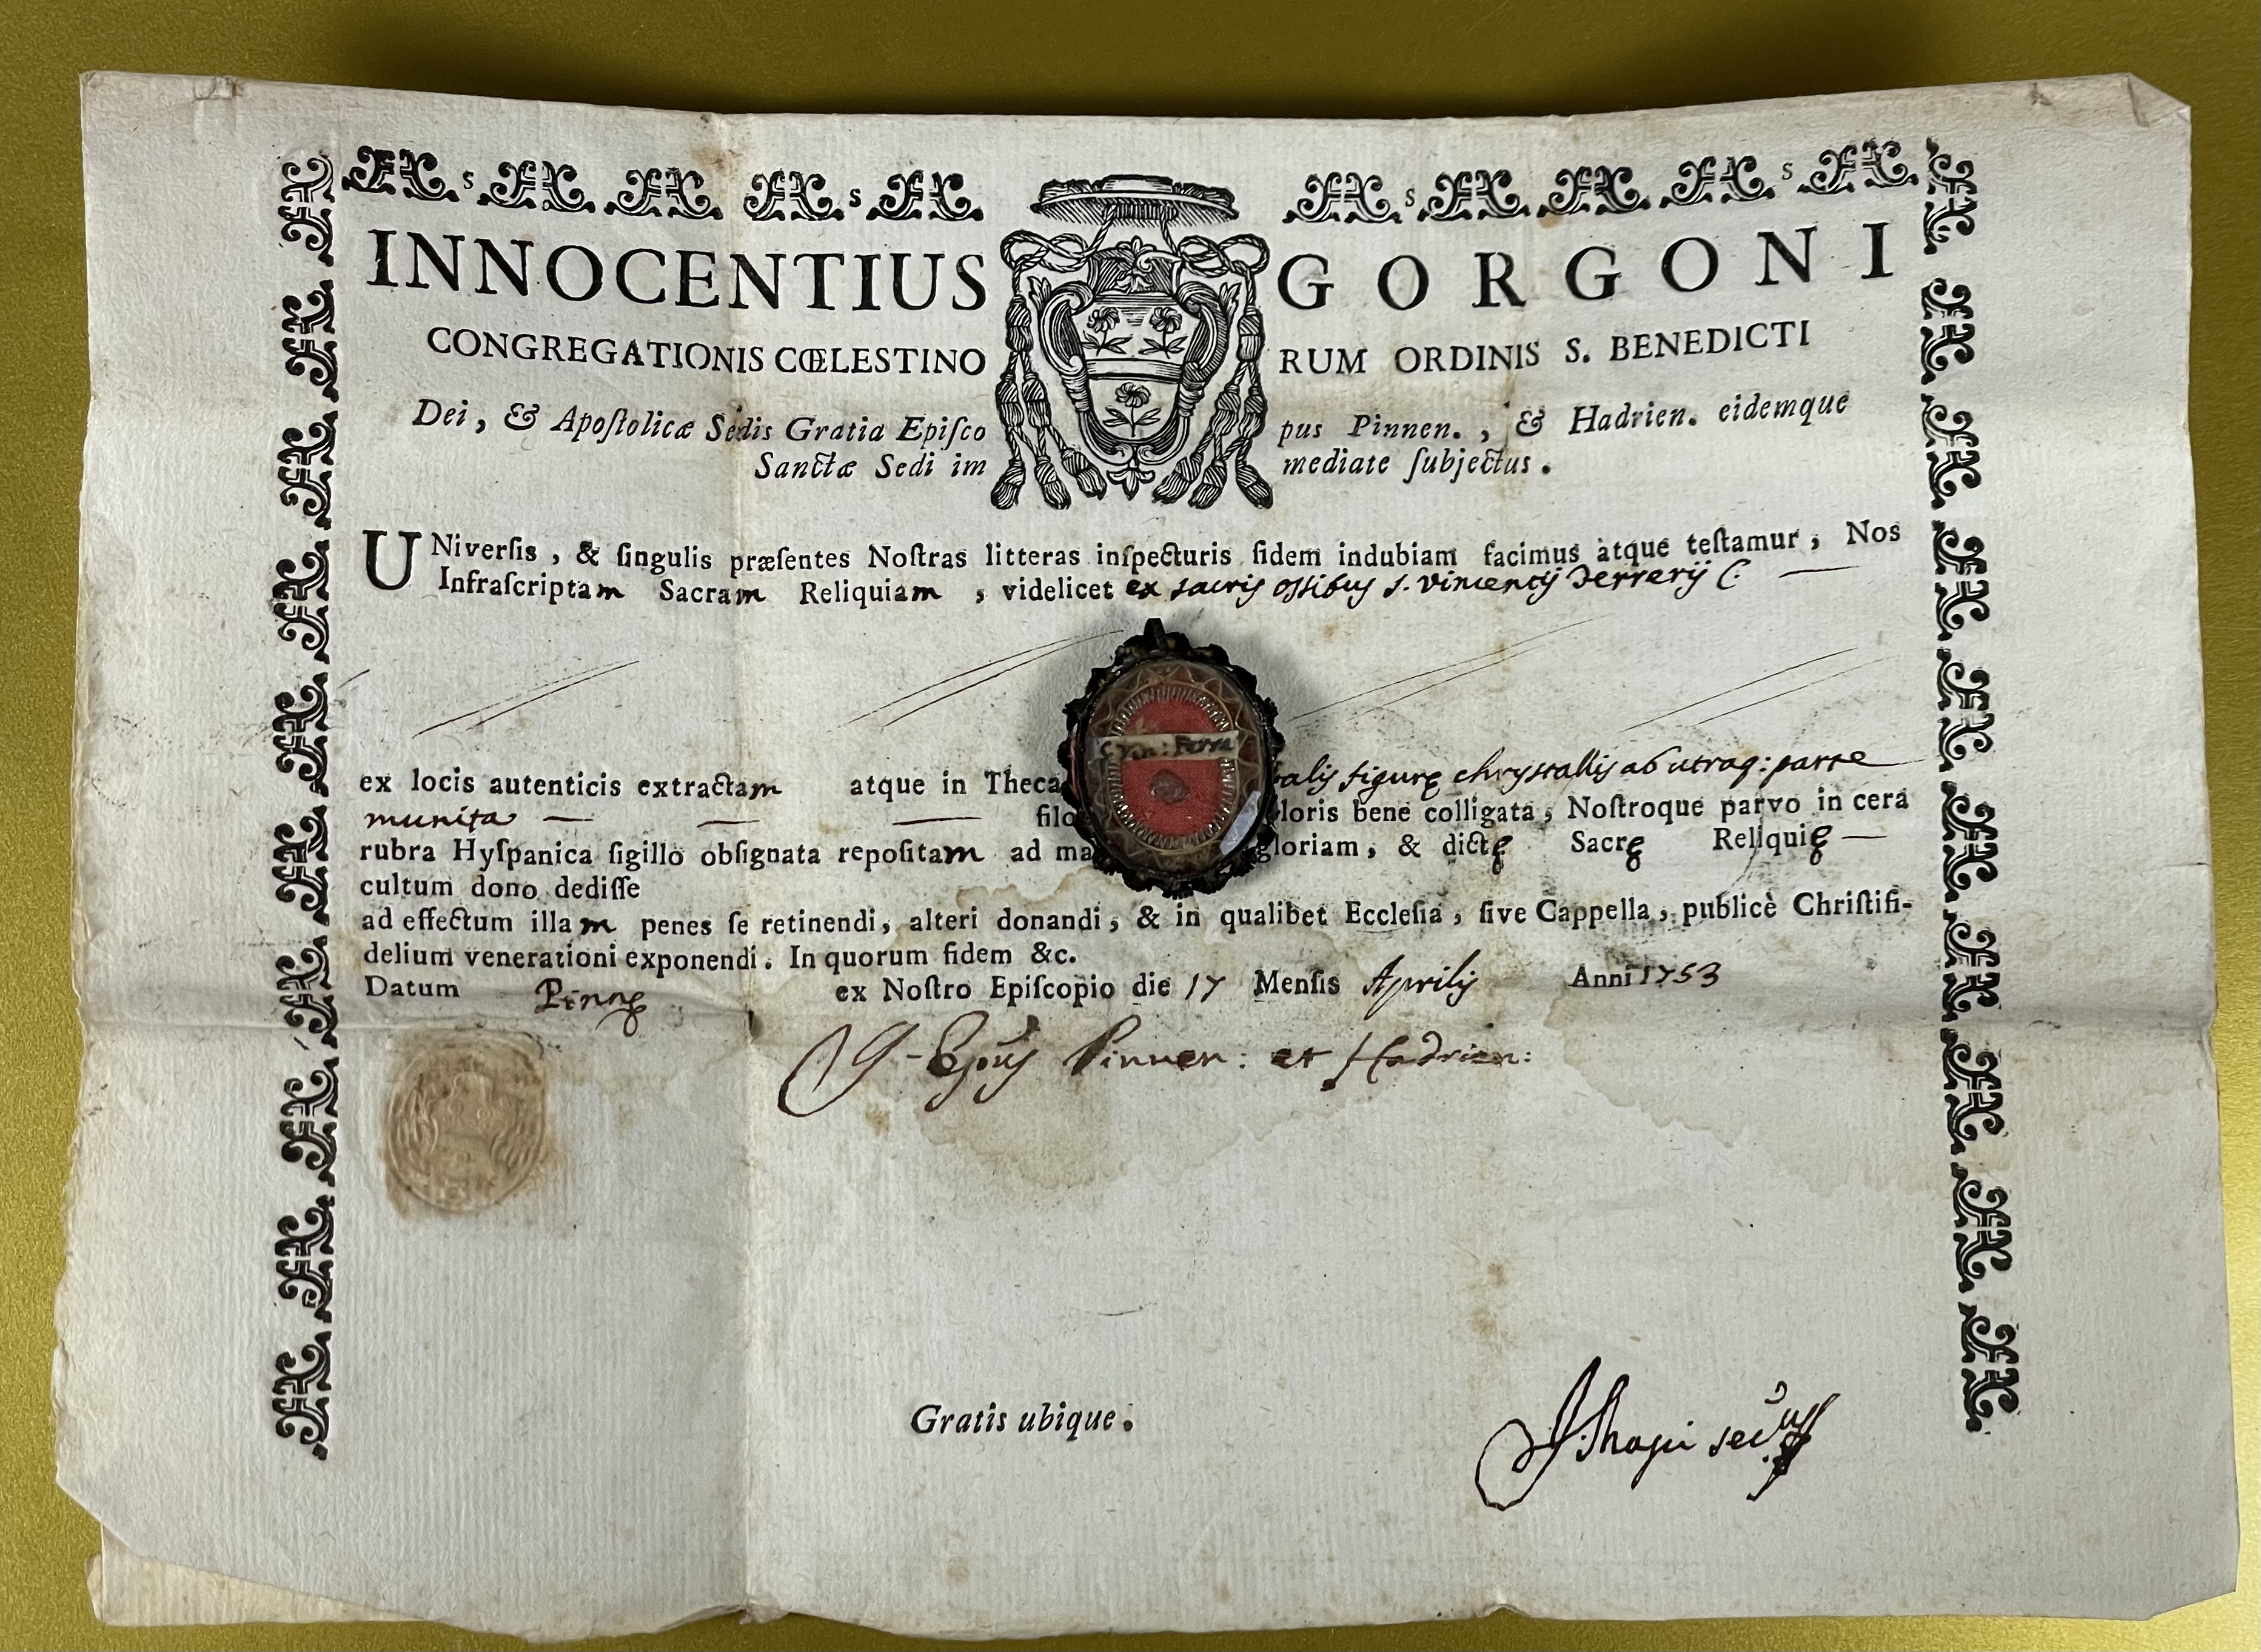 INNOCENTIUS GORGONI
CONGREGATIONIS CŒLESTINORUM ORDINIS S. BENEDICTI
Dei, & Apoſtolicæ Sedis Gratia Epiſcopus Pinnen., & Hadrien. eidemque
Sanctæ Sedi immediate ſubjectus.
UNiverſis, & ſingulis præſentes Noſtras litteras inſpecturis fidem indubiam facimus atque teſtamur, Nos
Infraſcriptam Sacram Reliquiam, videlicet ex sacris ossibus s. Vincentij Ferrerij C:
S. Vin: Ferre
ex locis autenticis extractam atque in Theca alis figurę chrystallis ab utraq: parte
munita filo loris bene colligata, Noſtroque parvo in cera
rubra Hyſpanica ſigillo obſignata repoſitam ad ma gloriam, & dictę Sacrę Reliquię
cultum dono dediſſe
ad effectum illam penes ſe retinendi, alteri donandi, & in qualibet Eccleſia, ſive Cappella, publicè Chriſtifi-
delium venerationi exponendi. In quorum fidem &c.
Datum Pinnę ex Noſtro Epiſcopio die 17 Menſis Aprilis Anni 1753
Epus Pinnen: et Hadrien:
Gratis ubique.